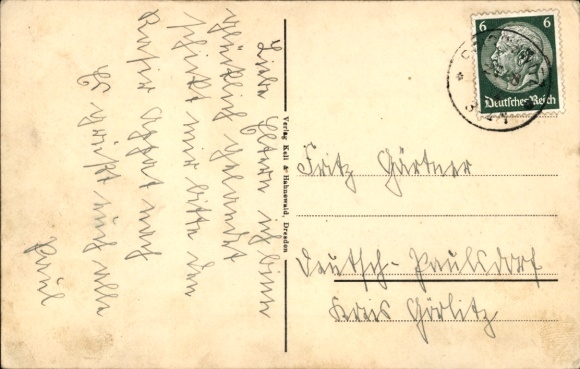 Liebe Eltern ich binn
glücklich gelandet
schickt mir bitte den
Rasier Apparat nach
Es grüßt euch alle
Paul
Verlag Kell & Hahnewald, Dresden
6 6
Deutsches Reich
Fritz Gärtner
Deutsch-Paulsdorf
Kreis Görlitz